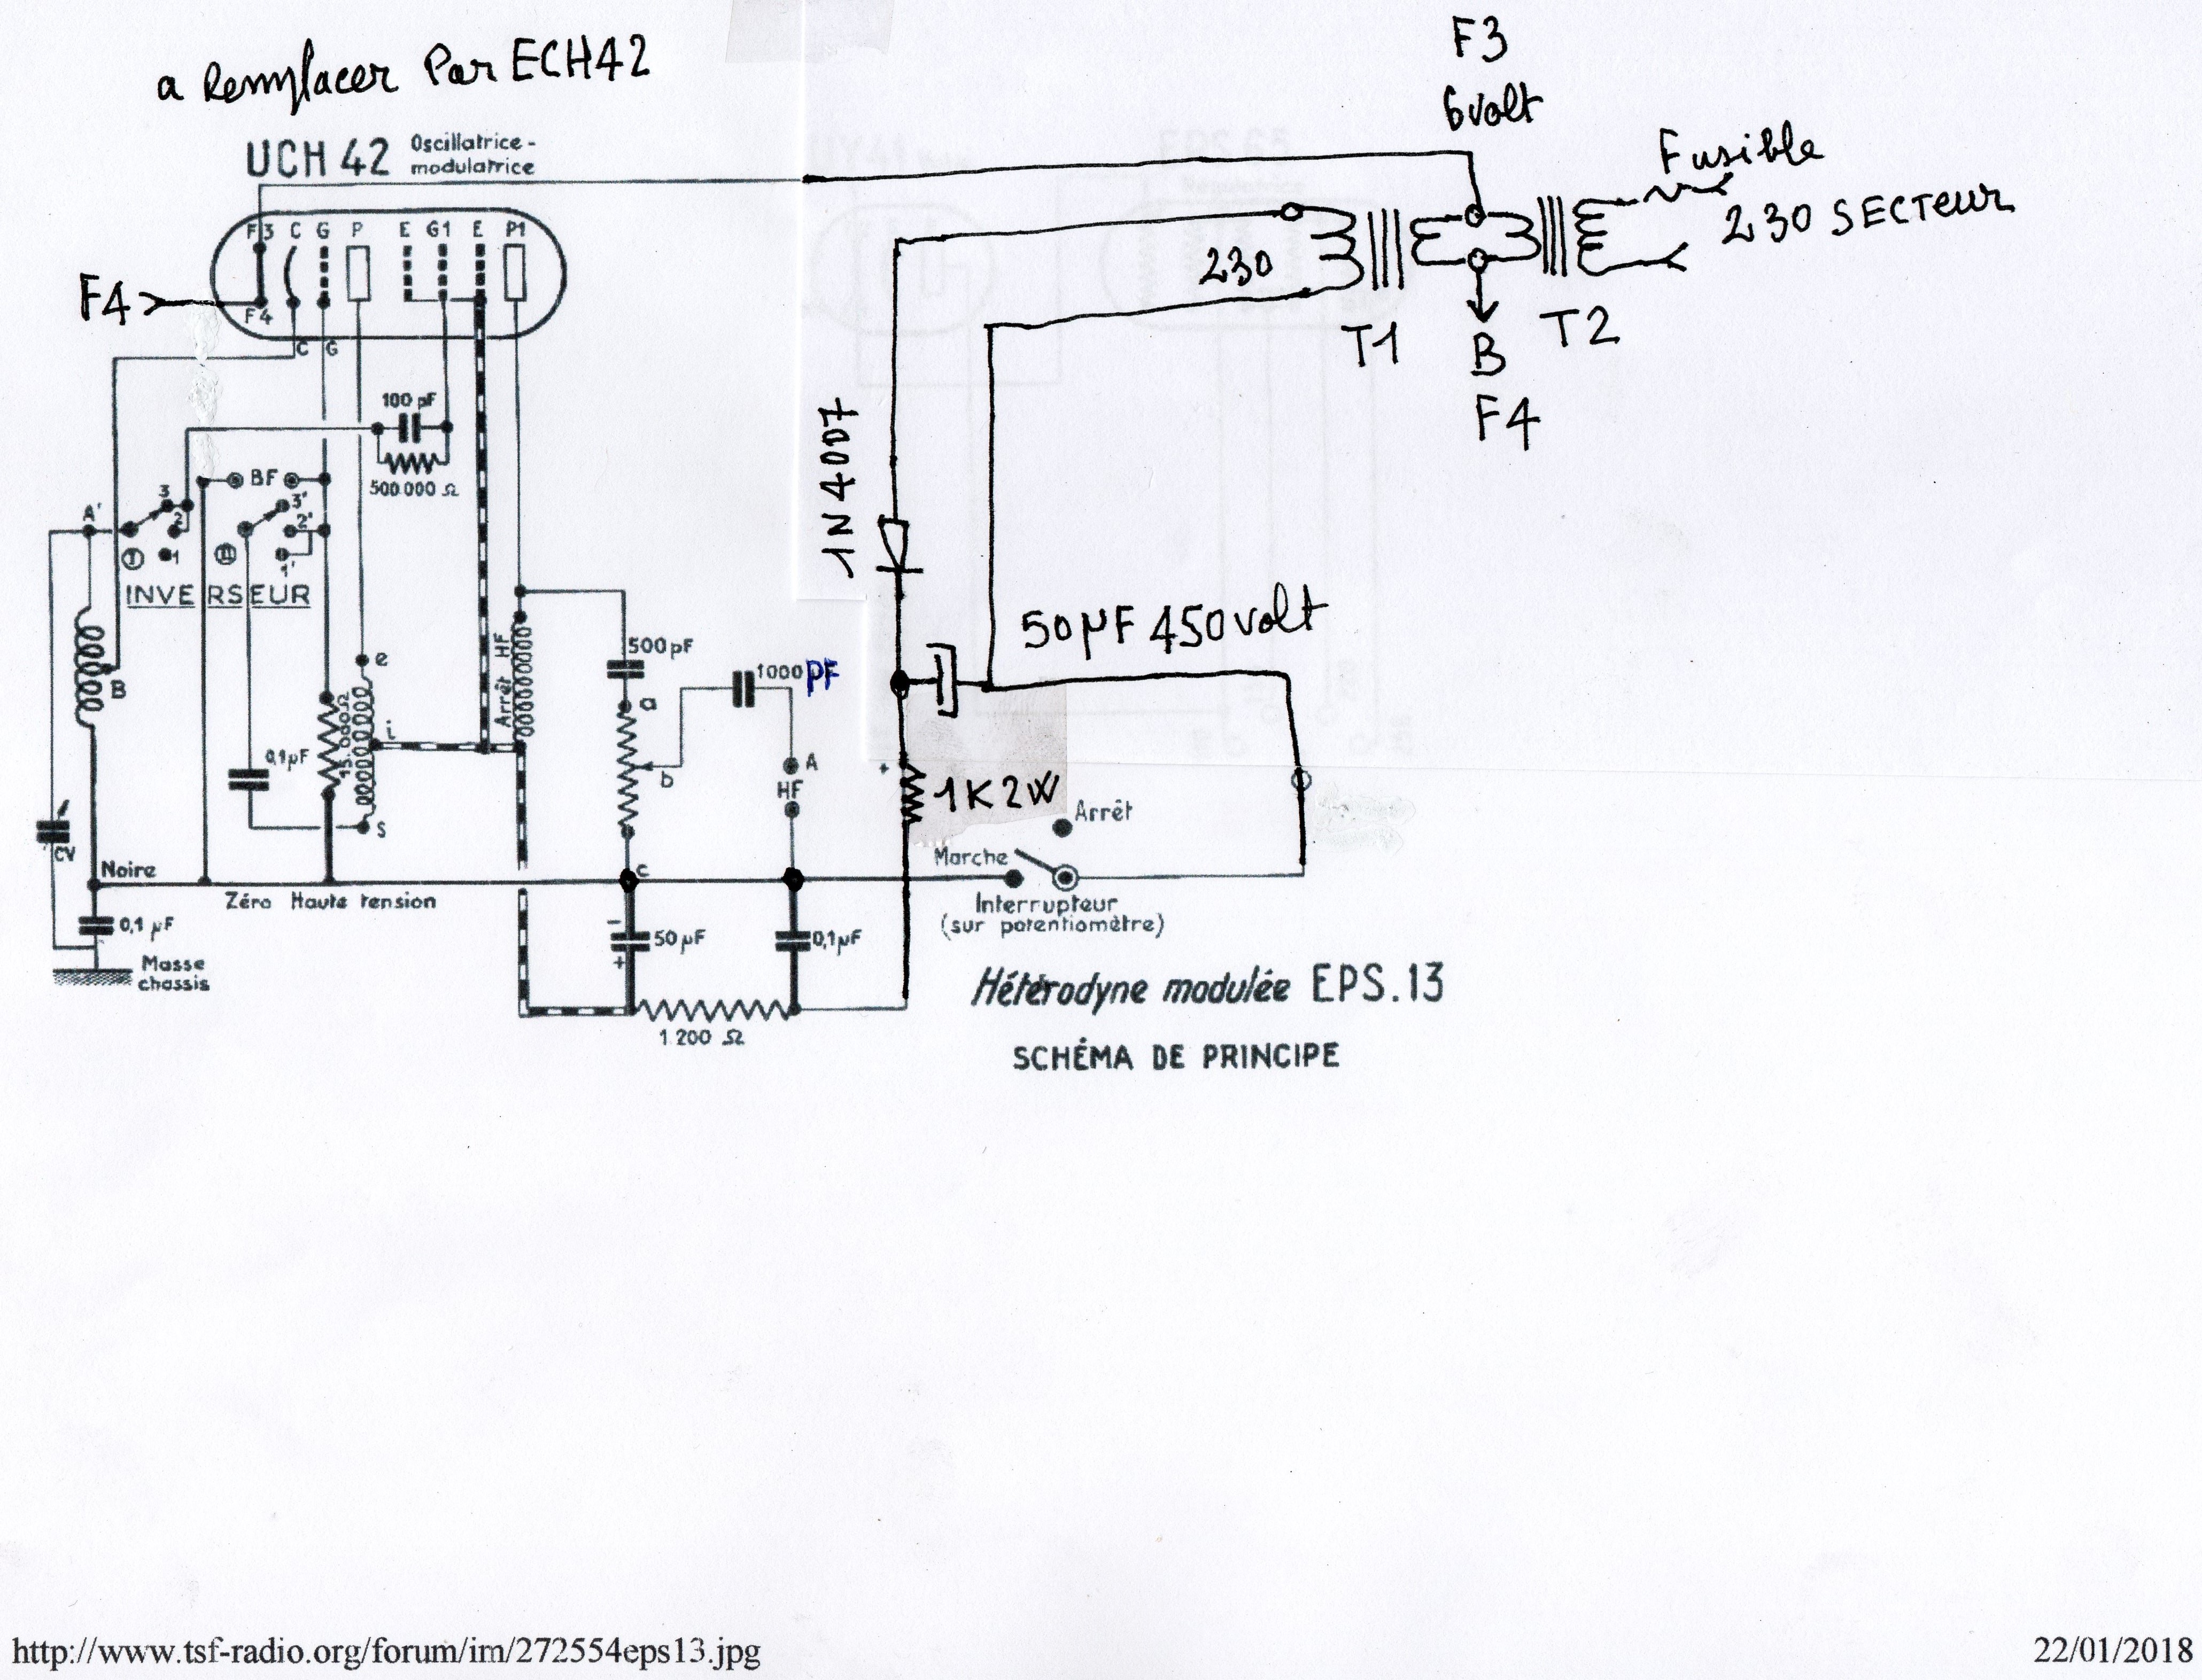 a Remplacer Par ECH42
F3
6volt
Fusible
230 SECTEUR
UCH 42 Oscillatrice-
modulatrice
F3 C G P E G1 E P1
F4
F4
C G
230
T1
B
F4
T2
1N4007
100 pF
500.000 Ω
BF
A'
3
2
1
I
3'
2'
1'
II
INVERSEUR
50µF 450volt
Arrêt HF
500 pF
1000 PF
e
a
b
i
B
A
HF
0,1µF
15.000 Ω
s
CV
+
1K2W
Arrêt
Marche
Noire
c
Zéro Haute tension
Interrupteur
(sur potentiomètre)
0,1 µF
Masse
chassis
-
50 µF
+
0,1µF
1.200 Ω
Hétérodyne modulée EPS.13
SCHÉMA DE PRINCIPE
http://www.tsf-radio.org/forum/im/272554eps13.jpg
22/01/2018